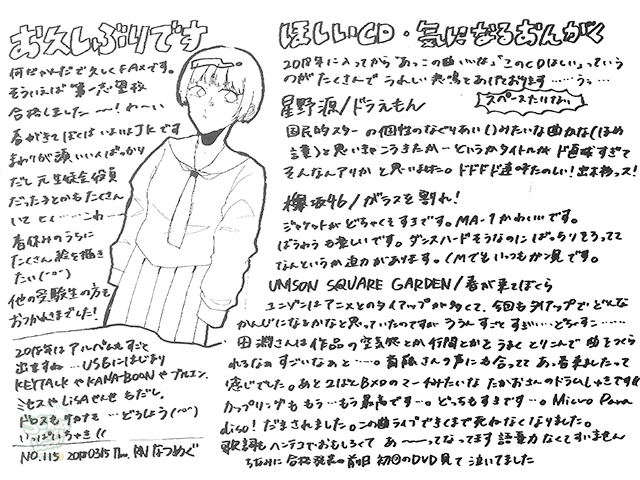 お久しぶりです
何だかんだで久しくFAXです。
そういえば第一志望校
合格しました～～！わ～い
春がきてぼくはいよいよJKです
まわりが頭いい人ばっかり
だし元生徒会役員
だったよとかもたくさん
いてヒィ……こわ…
春休みのうちに
たくさん絵を描き
たい(^o^)
他の受験生の方も
おつかれさまでした！
2018年はアルバムもすごと
出ますね…USGにはじまり
KEYTALKやKANA-BOONやブルエン、
ミセスやLiSAせんせもだし。
ドロスも
…どうしよう(^^)
いっぱい
NO.115 2018.03.15 Thu. RNなつめぐ
ほしいCD・気になるおんがく
2018年に入ってから「あっこの曲いいな」「このCDほしい」っていう
のがたくさんで うれしい悲鳴をあげております……うっ…
スペースたりない
星野源/ドラえもん
国民的スターの個性のなぐりあい()みたいな曲かな(ほめ
言葉)と思いきやこうきたかーというかタイトルがド直球すぎて
そんなんアリかと思いました。ドドド連呼たのしい！出木杉っス！
欅坂46/ガラスを割れ！
ジャケットがどちゃくそすきです。MA-1かわいいです。
ほうわうも楽しいです。ダンスハードそうなのにばっちりそろってて
なんというか迫力があります。CMでもいつもガン見です。
UNISON SQUARE GARDEN/春が来てぼくら
ユニゾンはアニメとのタイアップが多くて、今回もタイアップでどんな
かんじになるかなと思っていたのですが ううんすごとすごい…どちゃすこ……
田淵さんは作品の空気感とか行間とかをうまくとりこんで曲をつくら
れるなぁすごいなぁと…。斎藤さんの声にも合っててあっ春来ましたって
感じでした。あと2ばんBメロのマーチみたいな たかおさんのドラムしゃきです
カップリングももう…もう最高です…。どっちもすきです…。Micro Para
diso! だまされました。この曲ライブできくまで死ねなくなりました。
歌詞もヘンテコでおもしろくて あ～～ってなってます語彙力なくてすいません
ちなみに合格発表の前日 初回のDVD見て泣いてました